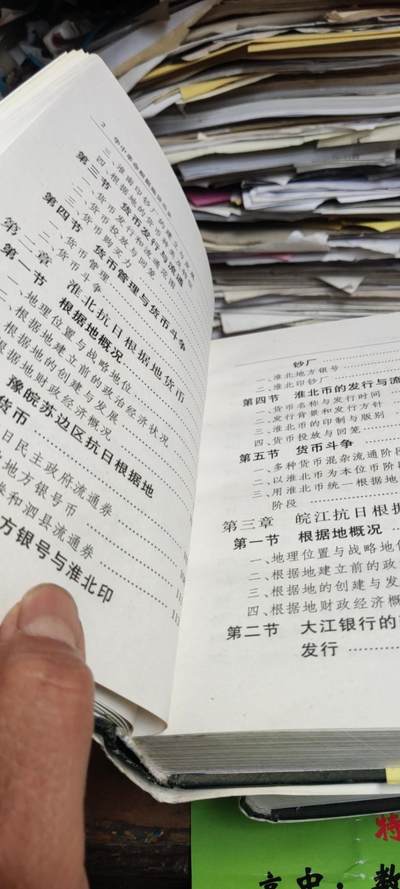 2 华中革命根据地货币史
三、淮南印钞厂
四、根据地的
第三节 货币发行与流通
一、货币发行和
二、货币投放与回笼
三、货币购买力
第四节 货币管理与货币斗争
一、货币管理
二、货币斗争
第二章 淮北抗日根据地货币
第一节 根据地概况
一、地理位置与战略地位
二、根据地建立前的政治经济状况
根据地的创建与发展
根据地财政经济概况
豫皖苏边区抗日根据地
货币
日民主政府流通券
地方银号币
券和泗县流通券
方银号与淮北印
钞厂
一、淮北地方银号
二、淮北印钞厂
第四节 淮北币的发行与流
一、货币名称与发行时间
二、发行背景和发行方针
三、淮北币的印制与版别
四、货币投放与回笼
第五节 货币斗争
一、多种货币混杂流通阶段
二、以淮北币为本位币阶段
三、用淮北币统一根据地
阶段
第三章 皖江抗日根据
第一节 根据地概况
一、地理位置与战略地位
二、根据地建立前的政
三、根据地的创建与发
四、根据地财政经济概
第二节 大江银行的
发行
特
高中 数